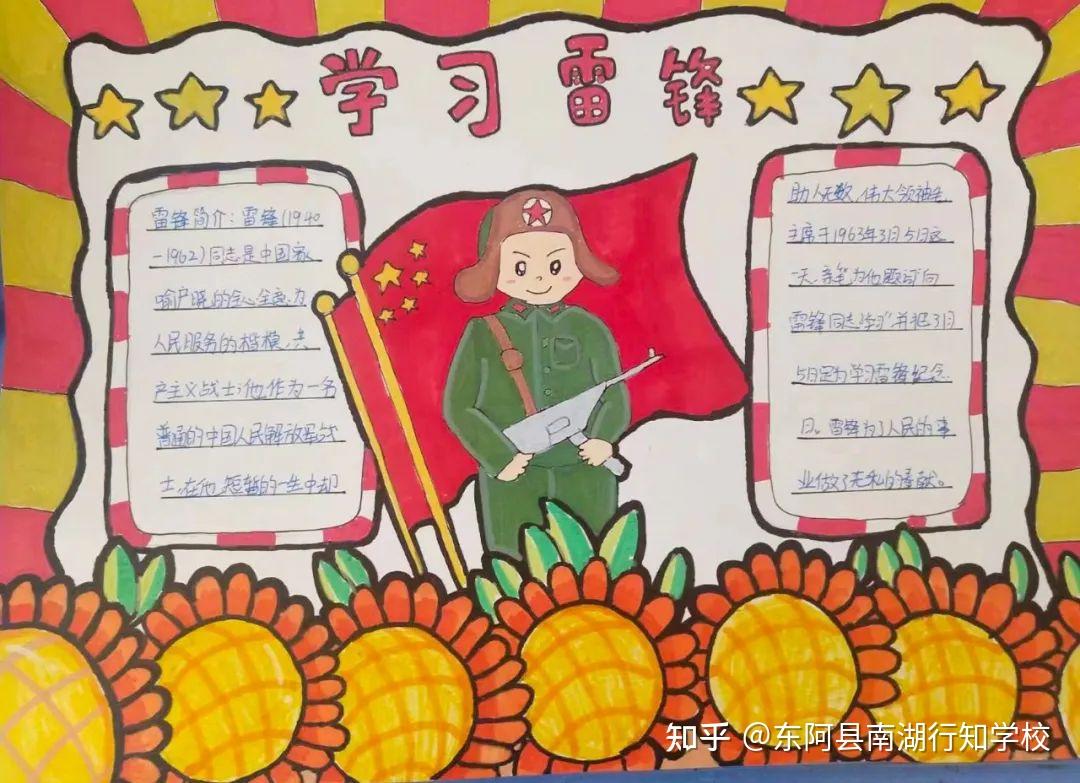 学习雷锋
雷锋简介：雷锋（1940
-1962）同志是中国家
喻户晓的全心全意为
人民服务的楷模，共
产主义战士；他作为一名
普通的中国人民解放军战
士，在他短暂的一生中却
助人无数，伟大领袖毛
主席于1963年3月5日这
一天亲笔为他题词“向
雷锋同志学习”并把3月
5日定为学习雷锋纪念
日。雷锋为了人民的事
业做了无私的奉献。
知乎 @东阿县南湖行知学校